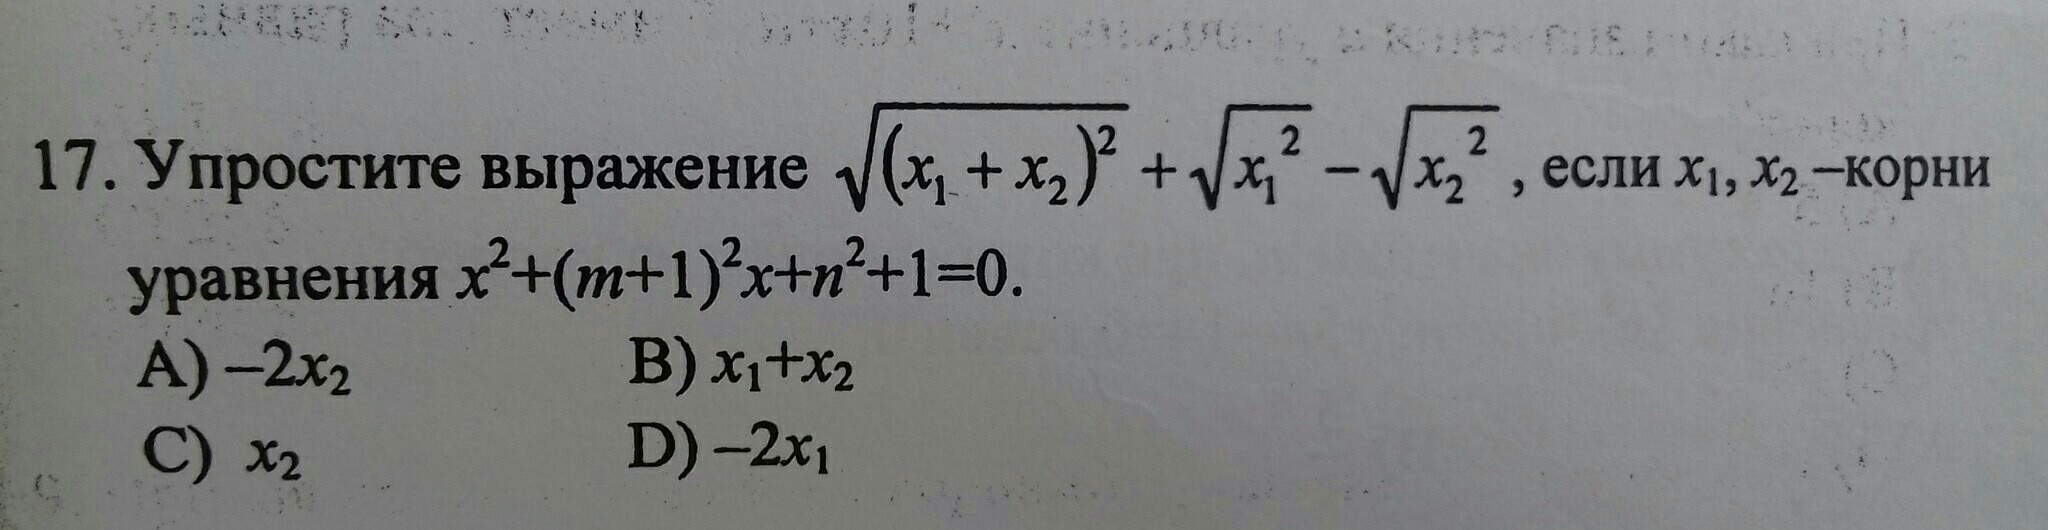 17. Упростите выражение √(x₁ + x₂)² + √x₁² − √x₂² , если x₁, x₂ –корни
уравнения x²+(m+1)²x+n²+1=0.
A) –2x₂ B) x₁+x₂
C) x₂ D) –2x₁